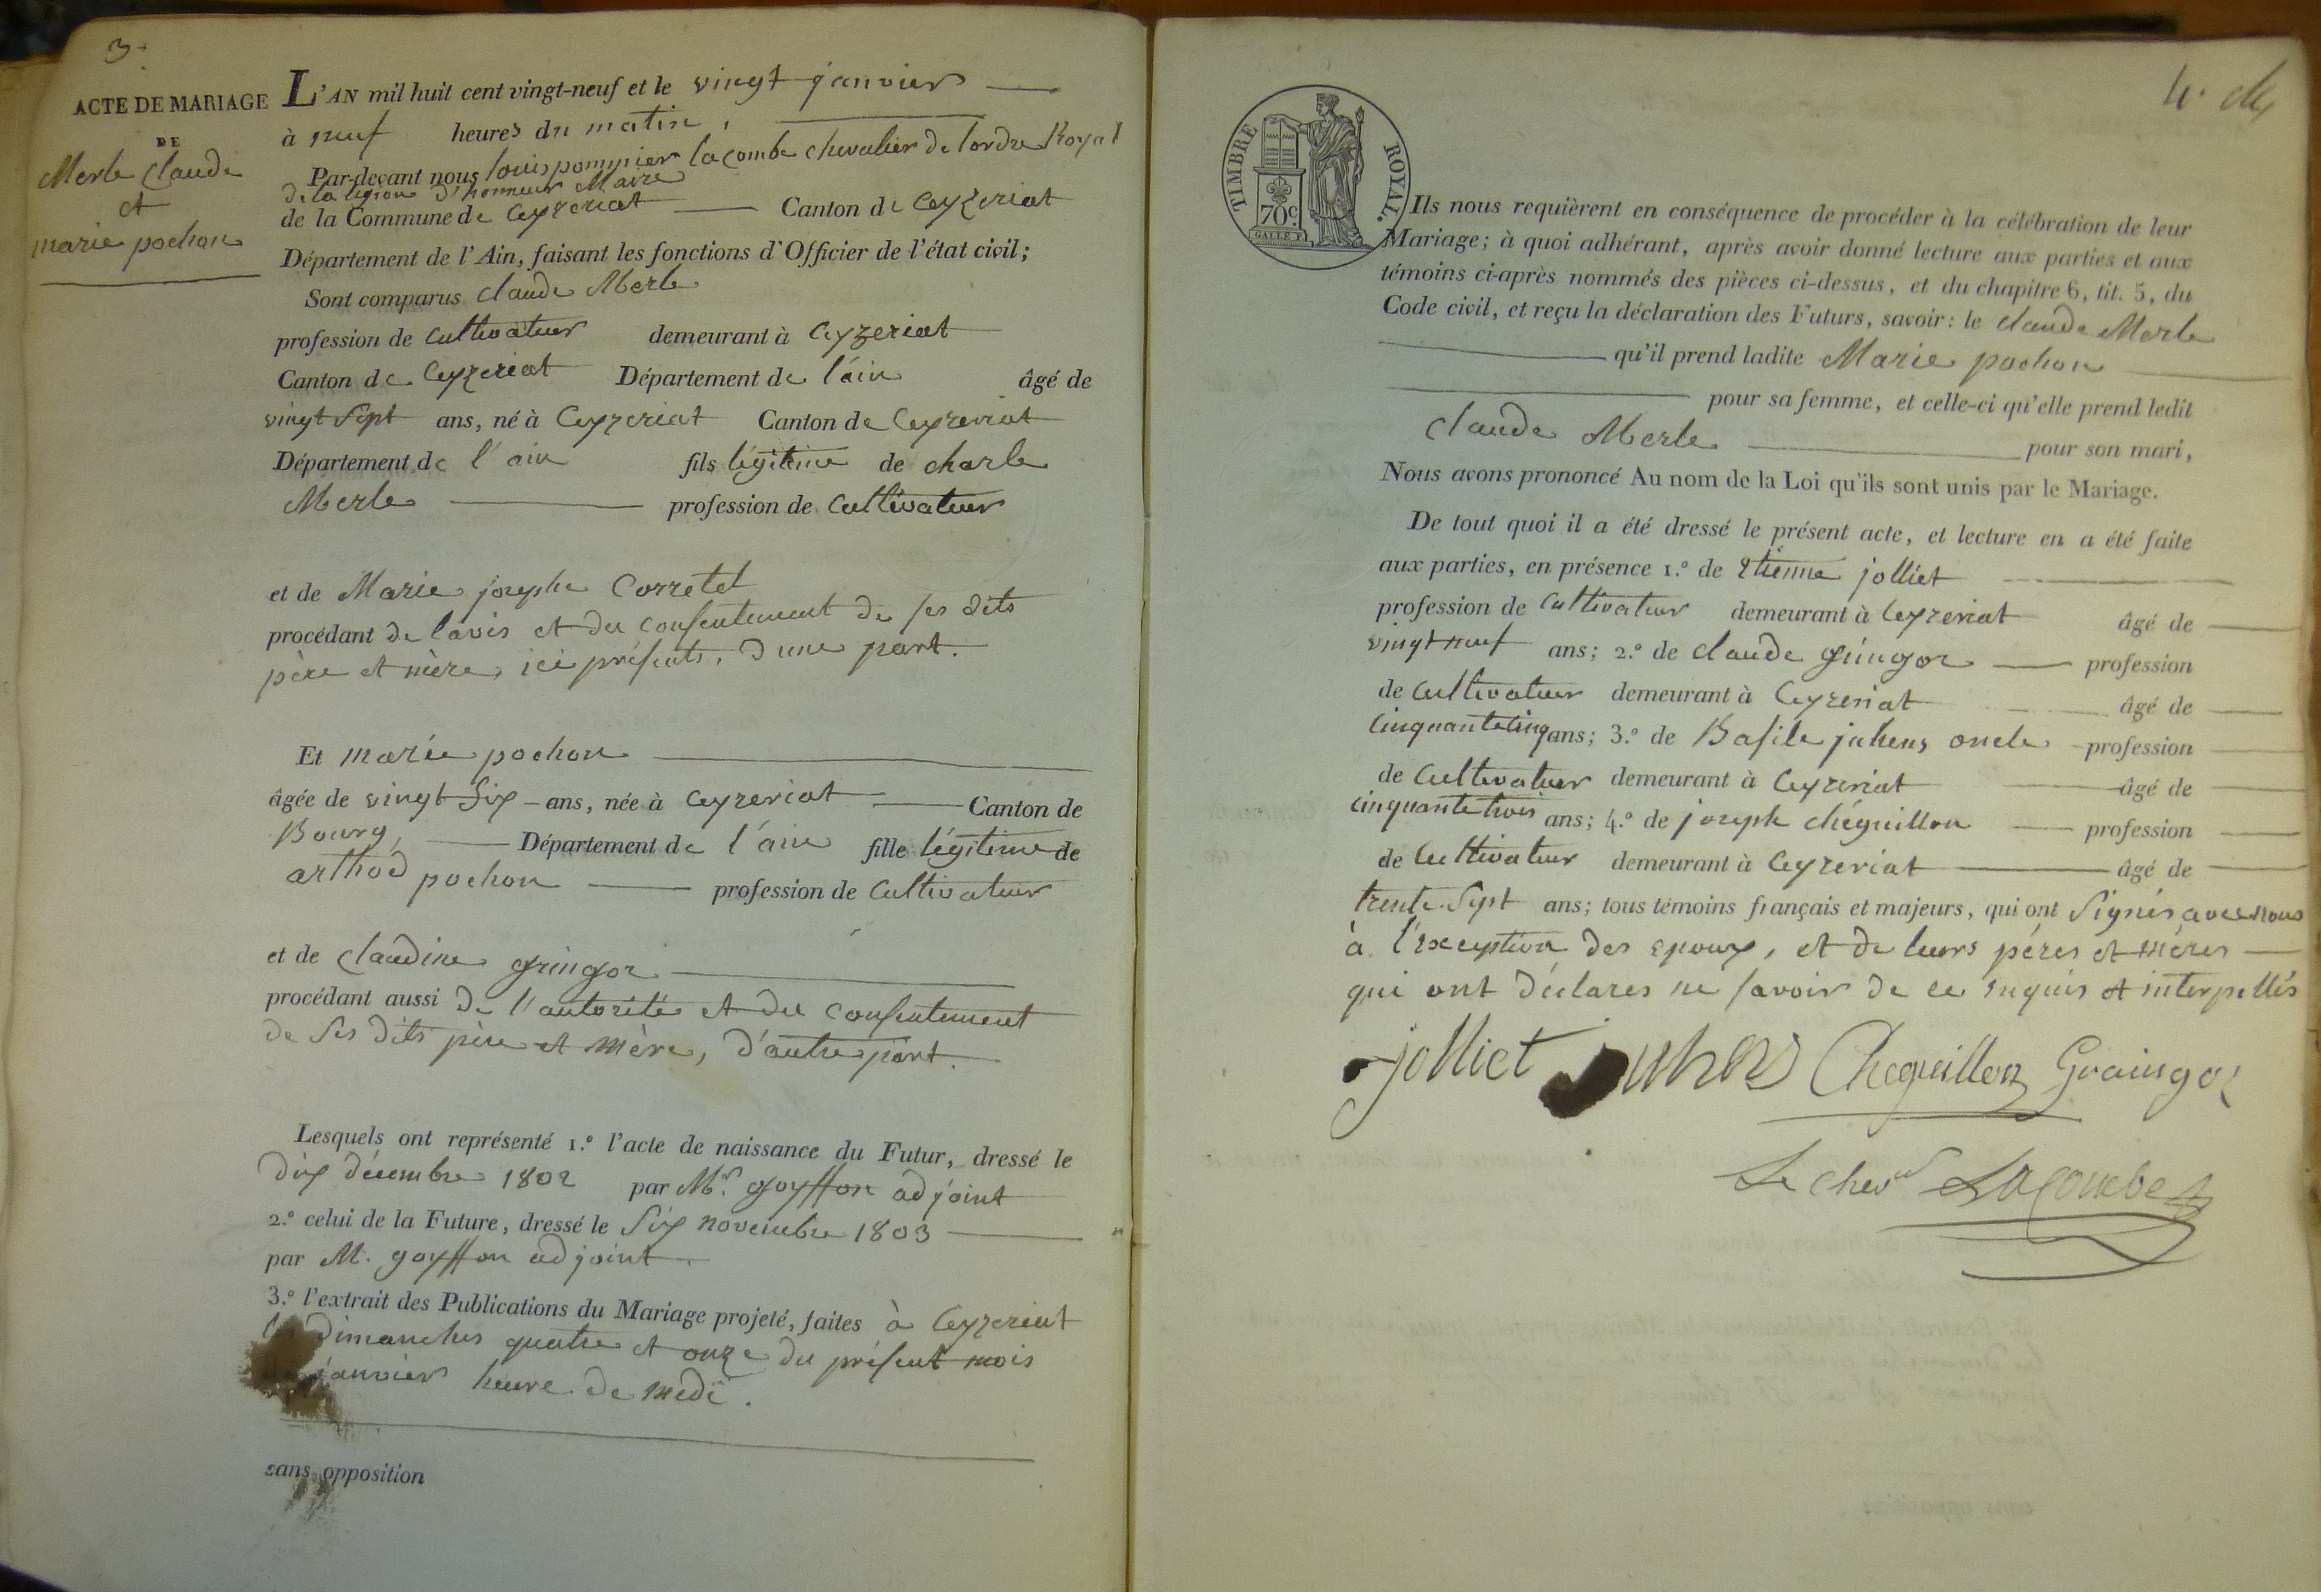 3.
ACTE DE MARIAGE
DE
Merle Claude
et
marie pochon
L'AN mil huit cent vingt-neuf et le vingt janvier
à neuf heures du matin,
Par-devant nous louis pompier lacombe chevalier de lordre Royal
de la légion d'honneur Maire
de la Commune de Ceyzeriat Canton de Ceyzeriat
Département de l'Ain, faisant les fonctions d'Officier de l'état civil;
Sont comparus claude Merle
profession de cultivateur demeurant à Ceyzeriat
Canton de Ceyzeriat Département de l'ain âgé de
vingt sept ans, né à Ceyzeriat Canton de Ceyzeriat
Département de l'ain fils légitime de charle
Merle profession de cultivateur
et de Marie josephe Corretel
procédant de lavis et du consentement de ses dits
père et mère, ici présents, d'une part.
Et marie pochon
âgée de vingt six ans, née à Ceyzeriat Canton de
Bourg, Département de l'ain fille légitime de
arthod pochon profession de cultivateur
et de claudine gringoz
procédant aussi de l'autorité et du consentement
de ses dits père et mère, d'autre part.
Lesquels ont représenté 1.° l'acte de naissance du Futur, dressé le
dix décembre 1802 par Mr. goyffon adjoint
2.° celui de la Future, dressé le six novembre 1803
par M. goyffon adjoint
3.° l'extrait des Publications du Mariage projeté, faites à Ceyzeriat
dimanches quatre et onze du présent mois
janvier heure de medi.
sans opposition
TIMBRE ROYAL.
70c
GALLE F.
Ils nous requièrent en conséquence de procéder à la célébration de leur
Mariage; à quoi adhérant, après avoir donné lecture aux parties et aux
témoins ci-après nommés des pièces ci-dessus, et du chapitre 6, tit. 5, du
Code civil, et reçu la déclaration des Futurs, savoir: le claude Merle
qu'il prend ladite Marie pochon
pour sa femme, et celle-ci qu'elle prend ledit
claude Merle pour son mari,
Nous avons prononcé Au nom de la Loi qu'ils sont unis par le Mariage.
De tout quoi il a été dressé le présent acte, et lecture en a été faite
aux parties, en présence 1.° de Etienne jolliet
profession de cultivateur demeurant à Ceyzeriat âgé de
vingt neuf ans; 2.° de claude gringoz profession
de cultivateur demeurant à Ceyzeriat âgé de
cinquante cinq ans; 3.° de Basile juhens oncle profession
de cultivateur demeurant à Ceyzeriat âgé de
cinquante trois ans; 4.° de joseph chéguillon profession
de cultivateur demeurant à Ceyzeriat âgé de
trente-sept ans; tous témoins français et majeurs, qui ont signés avec nous
à l'exception des epoux, et de leurs pères et mères
qui ont déclarés ne savoir de ce enquis et interpellés
jolliet Cheguillon Graingoz
Le chevr Lacombe